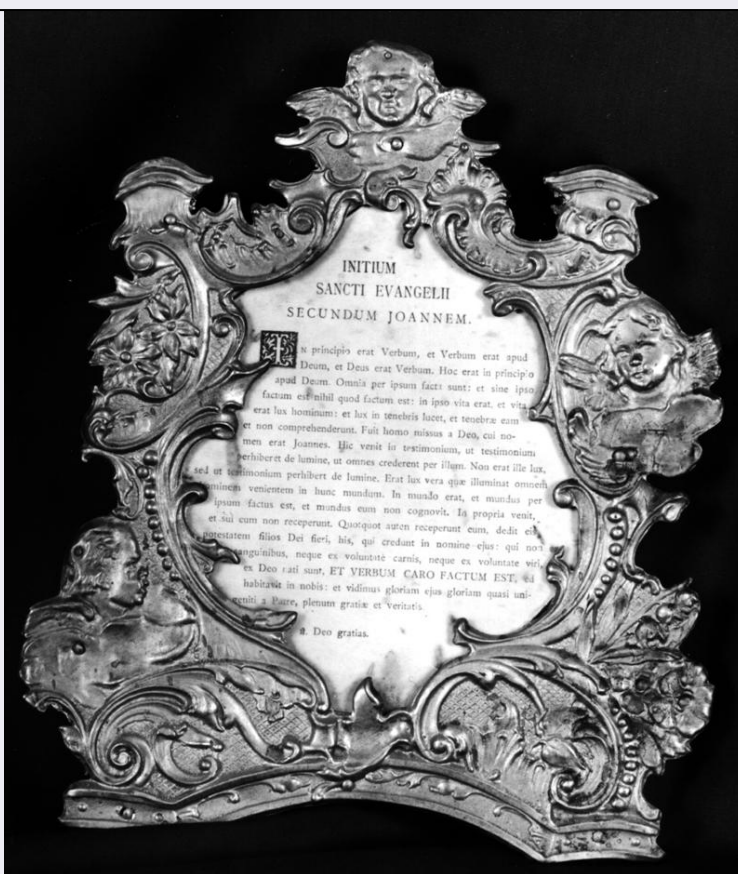 INITIUM
SANCTI EVANGELII
SECUNDUM JOANNEM.
IN principio erat Verbum, et Verbum erat apud
Deum, et Deus erat Verbum. Hoc erat in principio
apud Deum. Omnia per ipsum facta sunt: et sine ipso
factum est nihil quod factum est: in ipso vita erat, et vita
erat lux hominum: et lux in tenebris lucet, et tenebræ eam
et non comprehenderunt. Fuit homo missus a Deo, cui no-
men erat Joannes. Hic venit in testimonium, ut testimonium
perhiberet de lumine, ut omnes crederent per illum. Non erat ille lux,
sed ut testimonium perhibert de lumine. Erat lux vera quæ illuminat omnem
ominem venientem in hunc mundum. In mundo erat, et mundus per
ipsum factus est, et mundus eum non cognovit. In propria venit,
et sui eum non receperunt. Quotquot auten receperunt eum, dedit eis
potestatem filios Dei fieri, his, qui credunt in nomine ejus: qui non
anguinibus, neque ex voluntate carnis, neque ex voluntate viri,
ex Deo nati sunt, ET VERBUM CARO FACTUM EST, ed
habitavit in nobis: et vidimus gloriam ejus gloriam quasi uni-
geniti a Patre, plenum gratiæ et veritatis.
Deo gratias.